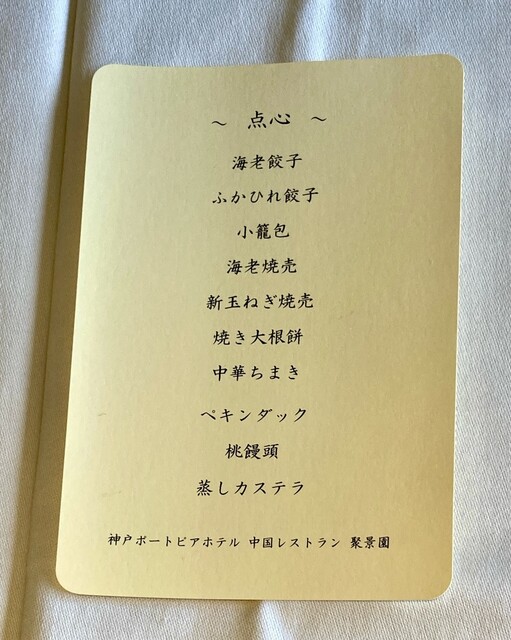 ～ 点心 ～
海老餃子
ふかひれ餃子
小籠包
海老焼売
新玉ねぎ焼売
焼き大根餅
中華ちまき
ペキンダック
桃饅頭
蒸しカステラ
神戸ポートピアホテル 中国レストラン 聚景園